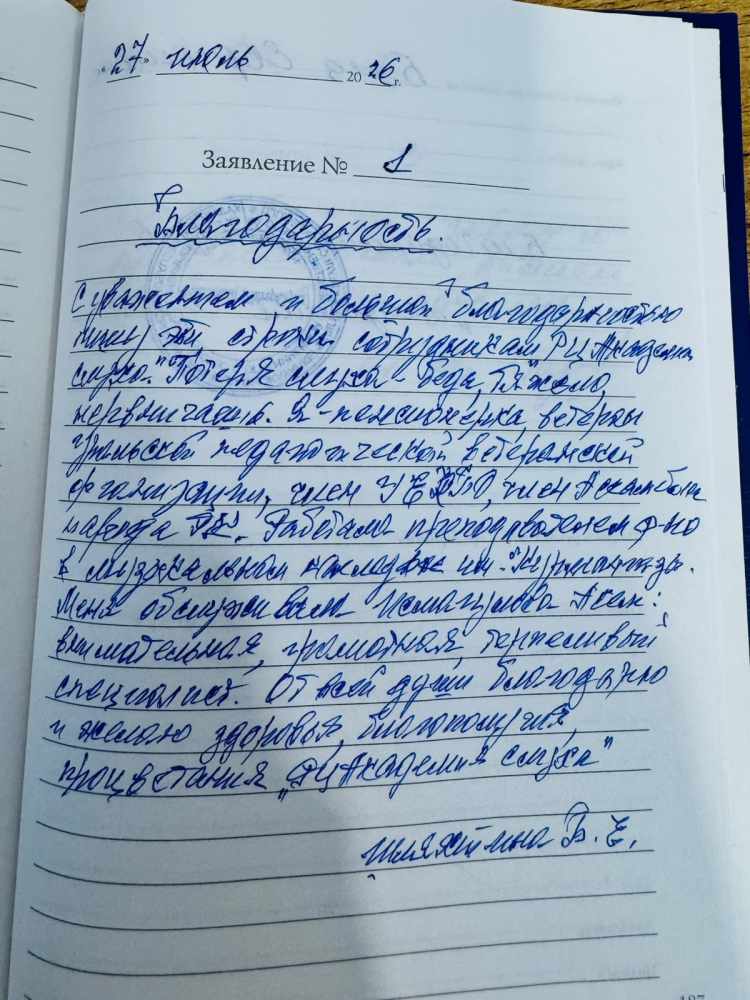 «27» июль 2026 г.
Заявление № 1
Благодарность.
С уважением и большой благодарностью
пишу эти строки сотрудникам РЦ Академия
слуха. "Потеря слуха - беда, тяжело
нервничаешь. Я - пенсионерка, ветеран
Уральской педагогической ветеранской
организации, член член Ассамблеи
народа РК. Работала преподавателем ф-но
в музыкальном колледже им. "Курмангазы.
Меня обслуживала Исмагулова Асем:
внимательная, грамотная, терпеливый
специалист. От всей души благодарю
и желаю здоровья, благополучия,
процветания „РЦ Академия слуха"
Шляхтина В. Е.